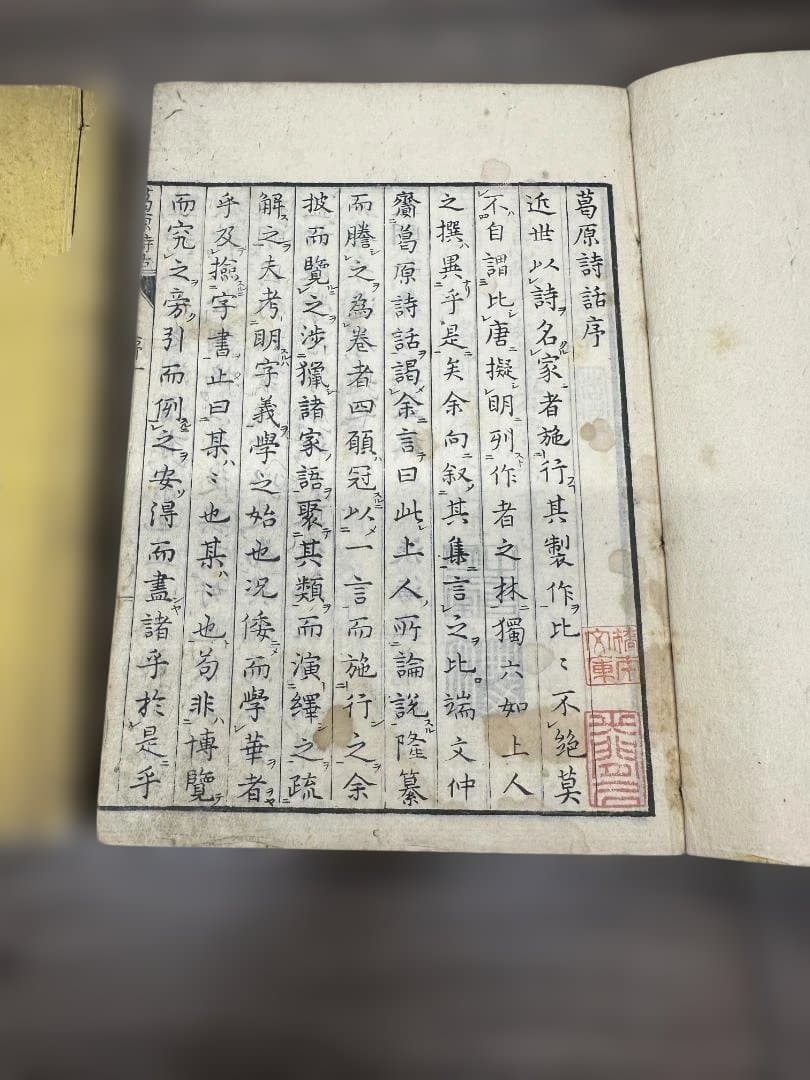 葛原詩話序
近世以詩名家者施行其製作比〻不絶莫
不自謂比唐擬明列作者之林獨六如上人
之撰異乎是矣余向叙其集言之比端文仲
齎葛原詩話謁余言曰此上人所論説隆纂
而謄之為卷者四願冠以一言而施行之余
披而覽之渉獵諸家語聚其類而演繹之疏
解之夫考明字義學之始也况倭而學華者
乎及撿字書止曰某〻也某〻也苟非博覽
而究之旁引而例之安得而盡諸乎於是乎